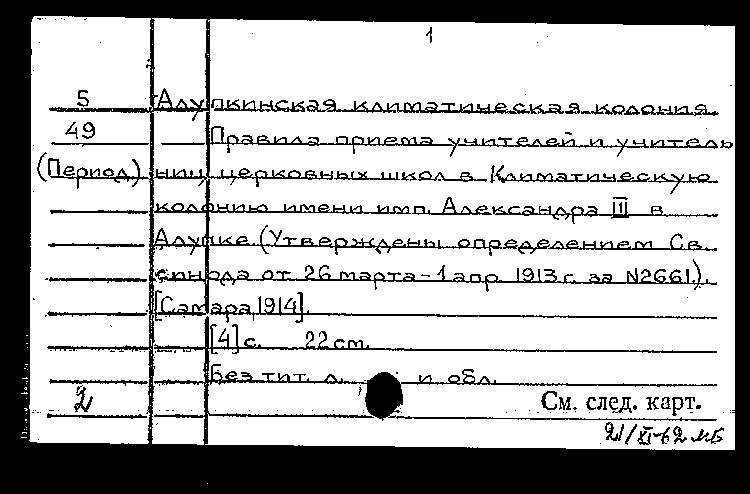 1
5 Алупкинская климатическая колония.
49 Правила приема учителей и учитель
(Период) ниц церковных школ в Климатическую
колонию имени имп. Александра III в
Алупке. (Утверждены определением Св.
синода от 26 марта-1 апр. 1913 г. за N2661.).
[Самара, 1914].
[4] с. 22 см.
Без тит. л. и обл.
2 См. след. карт.
21/XI-62 МБ